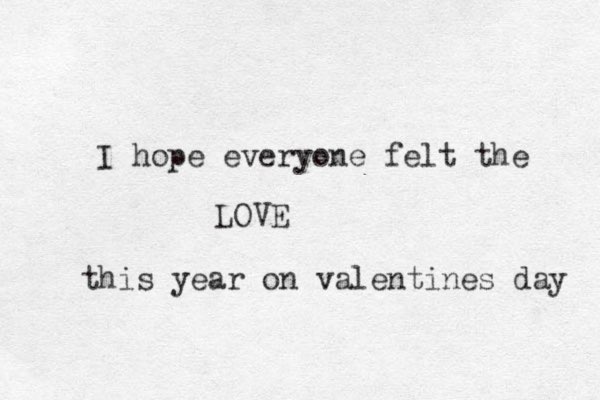 I hope everyone felt the
LOVE
this year on valentines day